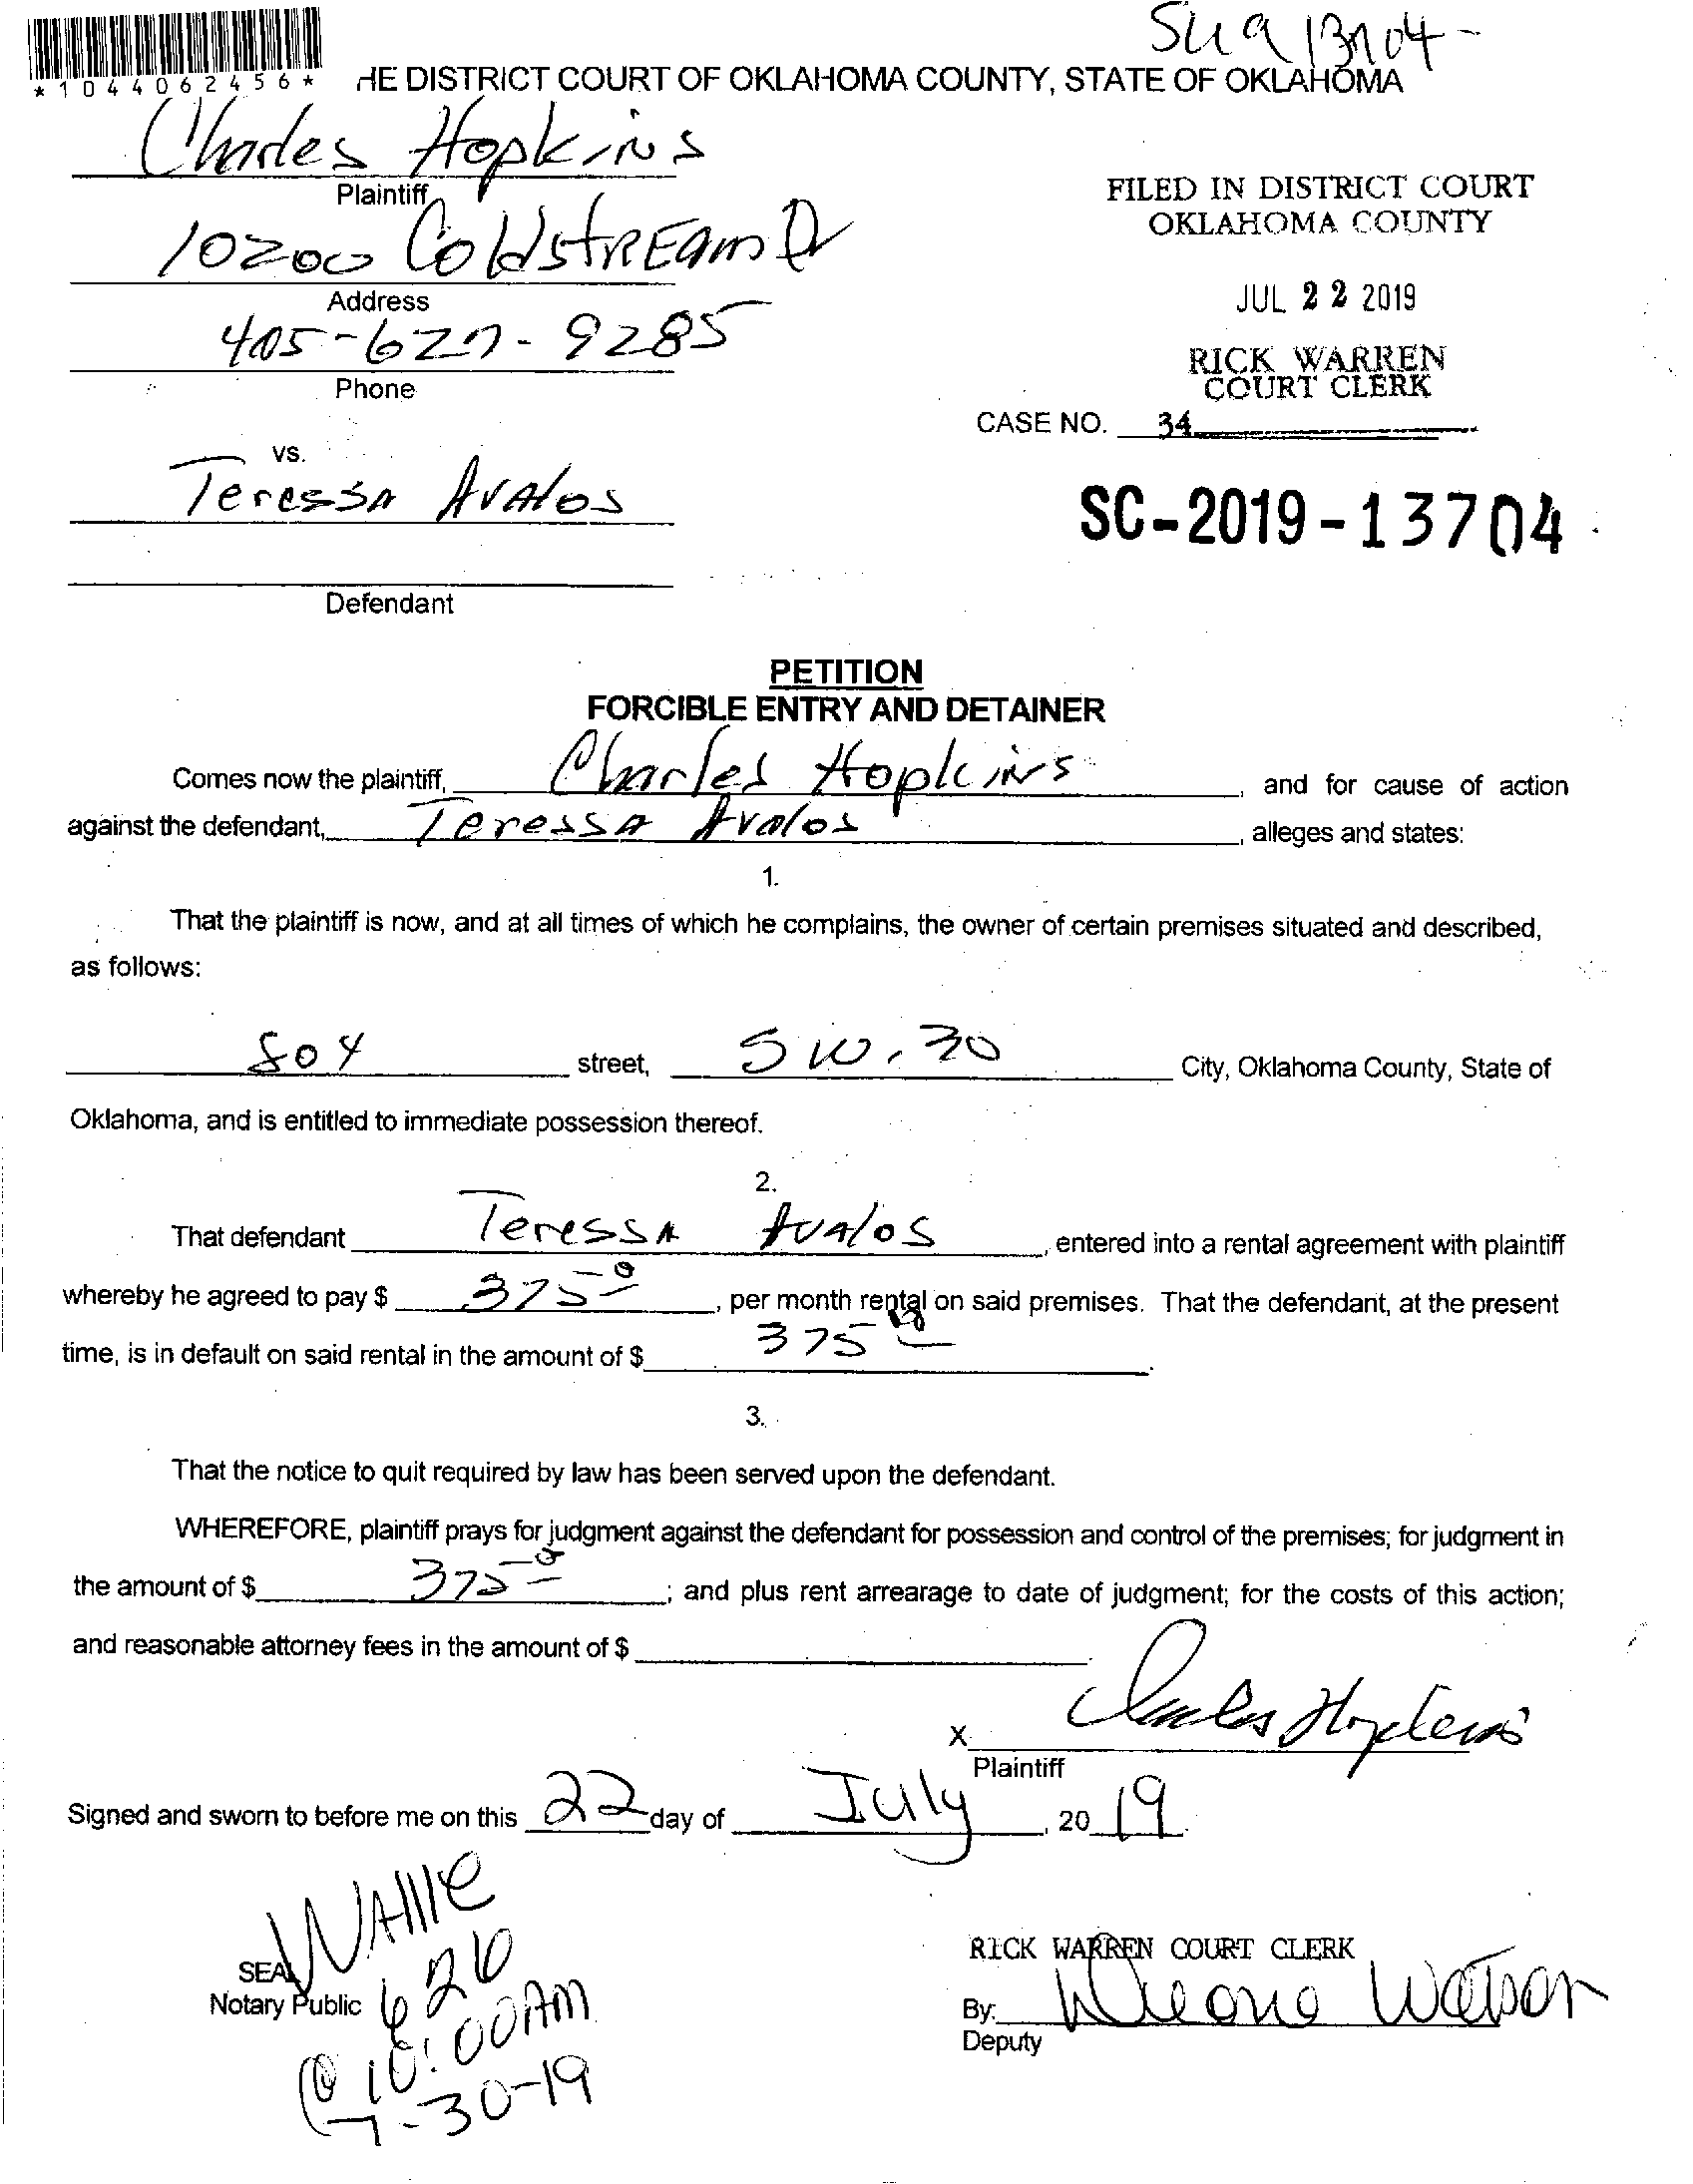 *1044062456*
HE DISTRICT COURT OF OKLAHOMA COUNTY, STATE OF OKLAHOMA
Charles Hopkins
Plaintiff
10200 ColdstREam Dr
Address
405-627-9285
Phone
FILED IN DISTRICT COURT
OKLAHOMA COUNTY
JUL 22 2019
RICK WARREN
COURT CLERK
CASE NO. 34
vs.
Teressa Avalos
SC-2019-13704
Defendant
PETITION
FORCIBLE ENTRY AND DETAINER
Comes now the plaintiff, Charles Hopkins, and for cause of action
against the defendant, Teressa Avalos, alleges and states:
1.
That the plaintiff is now, and at all times of which he complains, the owner of certain premises situated and described,
as follows:
804 street, SW. 30 City, Oklahoma County, State of
Oklahoma, and is entitled to immediate possession thereof.
2.
That defendant Teressa Avalos, entered into a rental agreement with plaintiff
whereby he agreed to pay $ 375, per month rental on said premises. That the defendant, at the present
time, is in default on said rental in the amount of $ 375.
3.
That the notice to quit required by law has been served upon the defendant.
WHEREFORE, plaintiff prays for judgment against the defendant for possession and control of the premises; for judgment in
the amount of $ 375; and plus rent arrearage to date of judgment; for the costs of this action;
and reasonable attorney fees in the amount of $
X Charles Hopkins
Plaintiff
Signed and sworn to before me on this 22 day of July, 20 19.
WAllIE
SEAL
Notary Public
626
@ 10:00AM
7-30-19
RICK WARREN COURT CLERK
By: Watson
Deputy